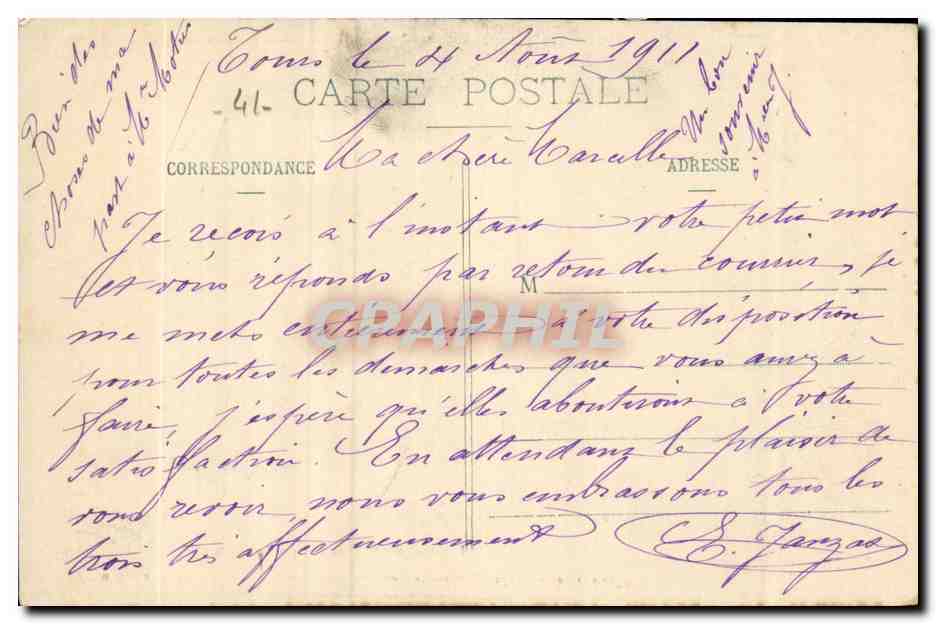 Tours le 4 Août 1911
CARTE POSTALE
-41-
Bien des
choses de ma
part à Mr Motus
Un bon
souvenir
à
Ma chère Marcelle
CORRESPONDANCE
ADRESSE
Je recois à l'instant votre petit mot
et vous réponds par retour du courrier, je
M
me mets entièrement à votre disposition
CPAPHIL
pour toutes les demarches que vous aurez à
faire, j'espère qu'elles aboutiront à votre
satisfaction. En attendant le plaisir de
vous revoir, nous vous embrassons tous les
trois très affectueusement
E. Janzas